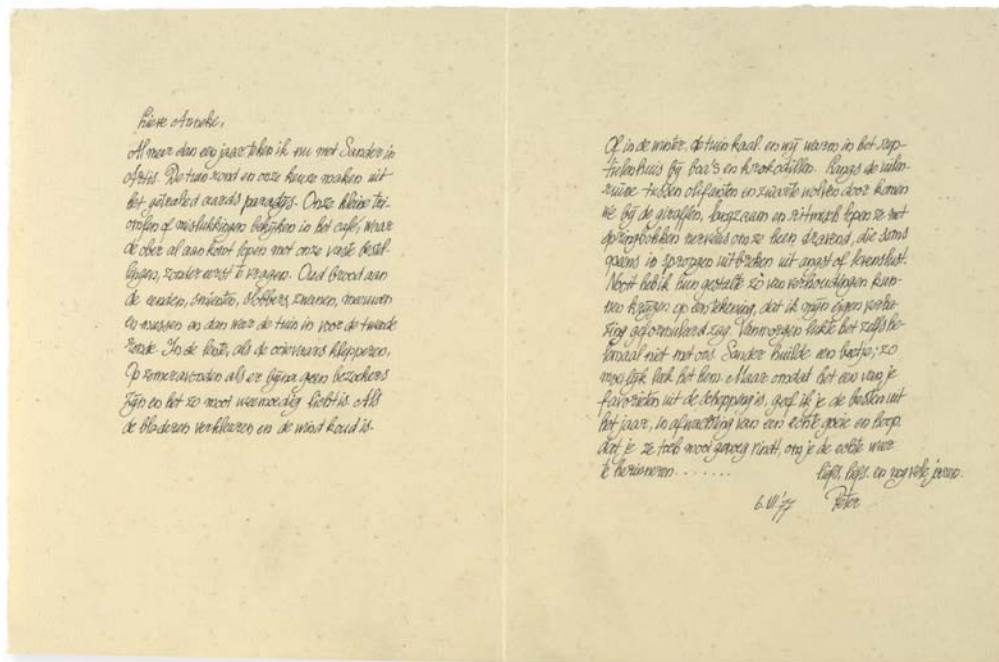 Lieve Anneke,
Al meer dan een jaar teken ik nu met Sander in
Artis. De tuin rond en onze keuze maken uit
het geschapen aards paradijs. Onze kleine tri-
omfen of mislukkingen bekijken in het café, waar
de ober al aan komt lopen met onze vaste bestel-
lingen, zonder eerst te vragen. Oud brood aan
de eenden, smienten, slobbers, zwanen, meeuwen
en mussen en dan weer de tuin in voor de tweede
ronde. In de lente, als de ooievaars klepperen,
Op zomeravonden als er bijna geen bezoekers
zijn en het zo mooi weemoedig licht is. Als
de bladeren verkleuren en de wind koud is.
Of in de winter, de tuin kaal en wij warm in het rep-
tielenhuis bij boa's en krokodillen. Langs de uilen-
ruïne tussen olifanten en zwarte wolven door komen
we bij de giraffen, langzaam en ritmisch lopen ze met
springbokken nerveus om ze heen dravend, die soms
ineens in sprongen uitbreken uit angst of levenslust.
Nooit heb ik hun gestalte zó van verhoudingen kun-
nen krijgen op een tekening, dat ik mijn eigen verba-
zing geformuleerd zag. Vanmorgen lukte het zelfs he-
lemaal niet met ons. Sander huilde een beetje; zo
moeilijk leek het hem. Maar omdat het een van je
favorieten uit de schepping is, geef ik je de besten uit
het jaar, in afwachting van een echte goeie en hoop
dat je ze toch mooi genoeg vindt, om je de echte weer
te herinneren.......
liefs, liefs. en nog vele jaren.
6.III.'77 Peter